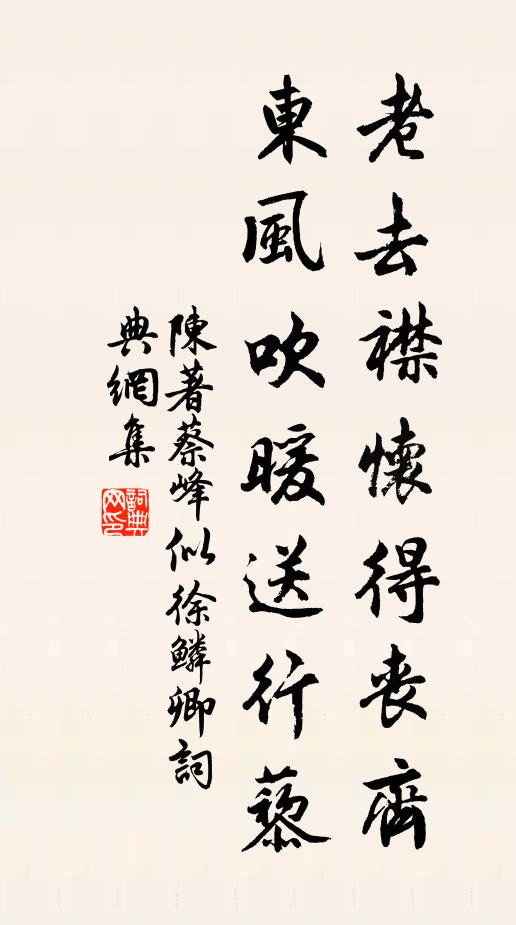 老去襟懷得喪齊
東風吹暖送行藜
陳著蔡峰似徐鱗卿詞
典網集
詞典網印